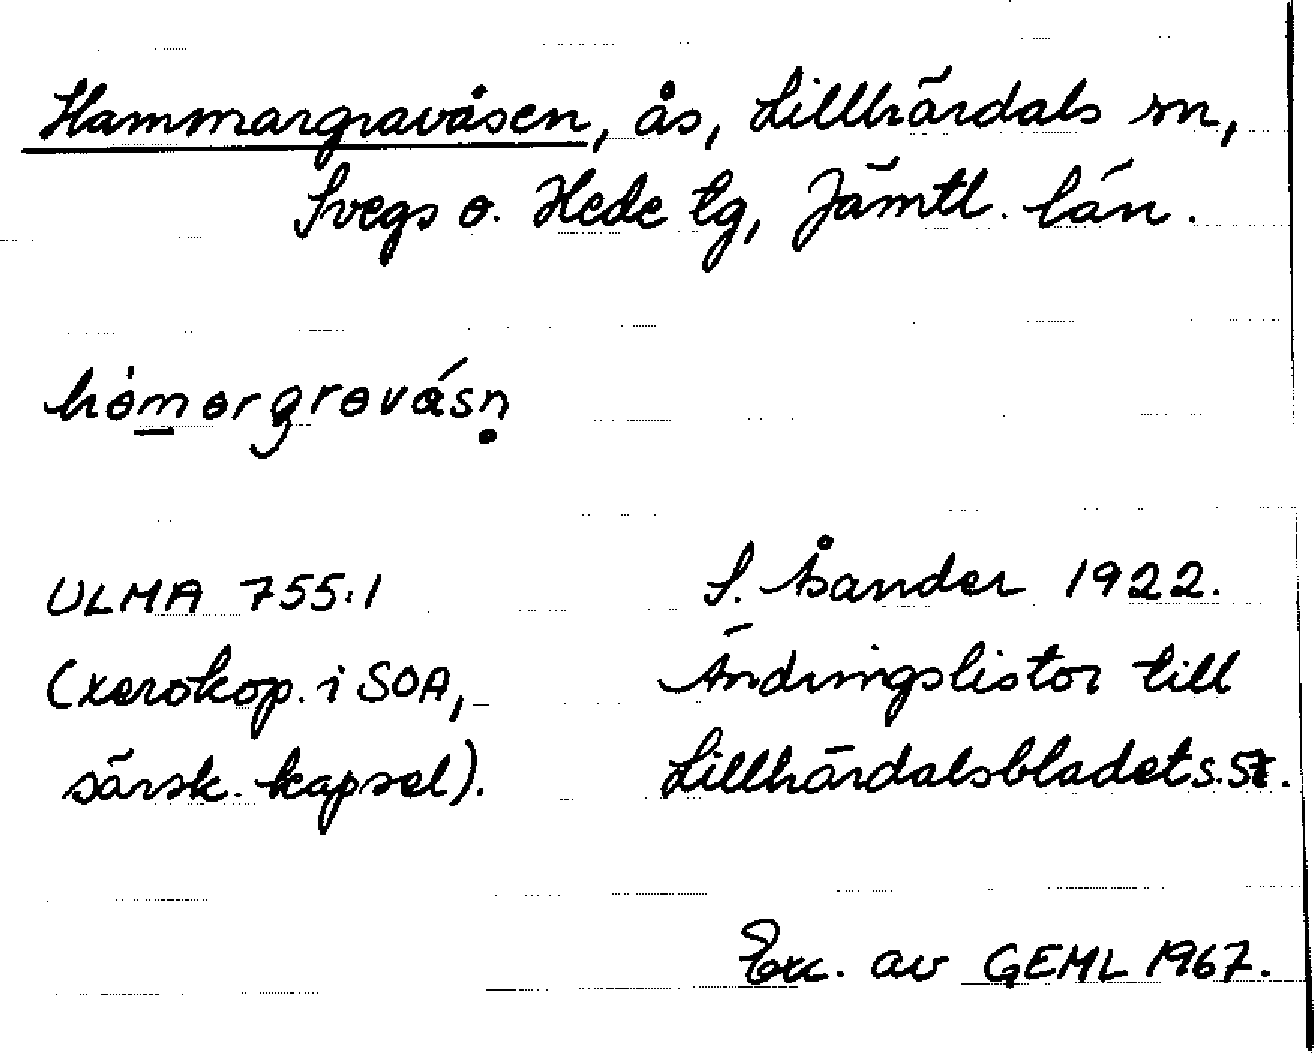 Hammargravåsen, ås, Lillhärdals sn,
Svegs o. Hede tg, Jämtl. län.
hȯm̲ɵrgrɵvásṇ
ULMA 755:1
(xerokop. i SOA,
särsk. kapsel).
S. Åander 1922.
Ändringslistor till
Lillhärdalsbladet
Exc. av GEML 1967.